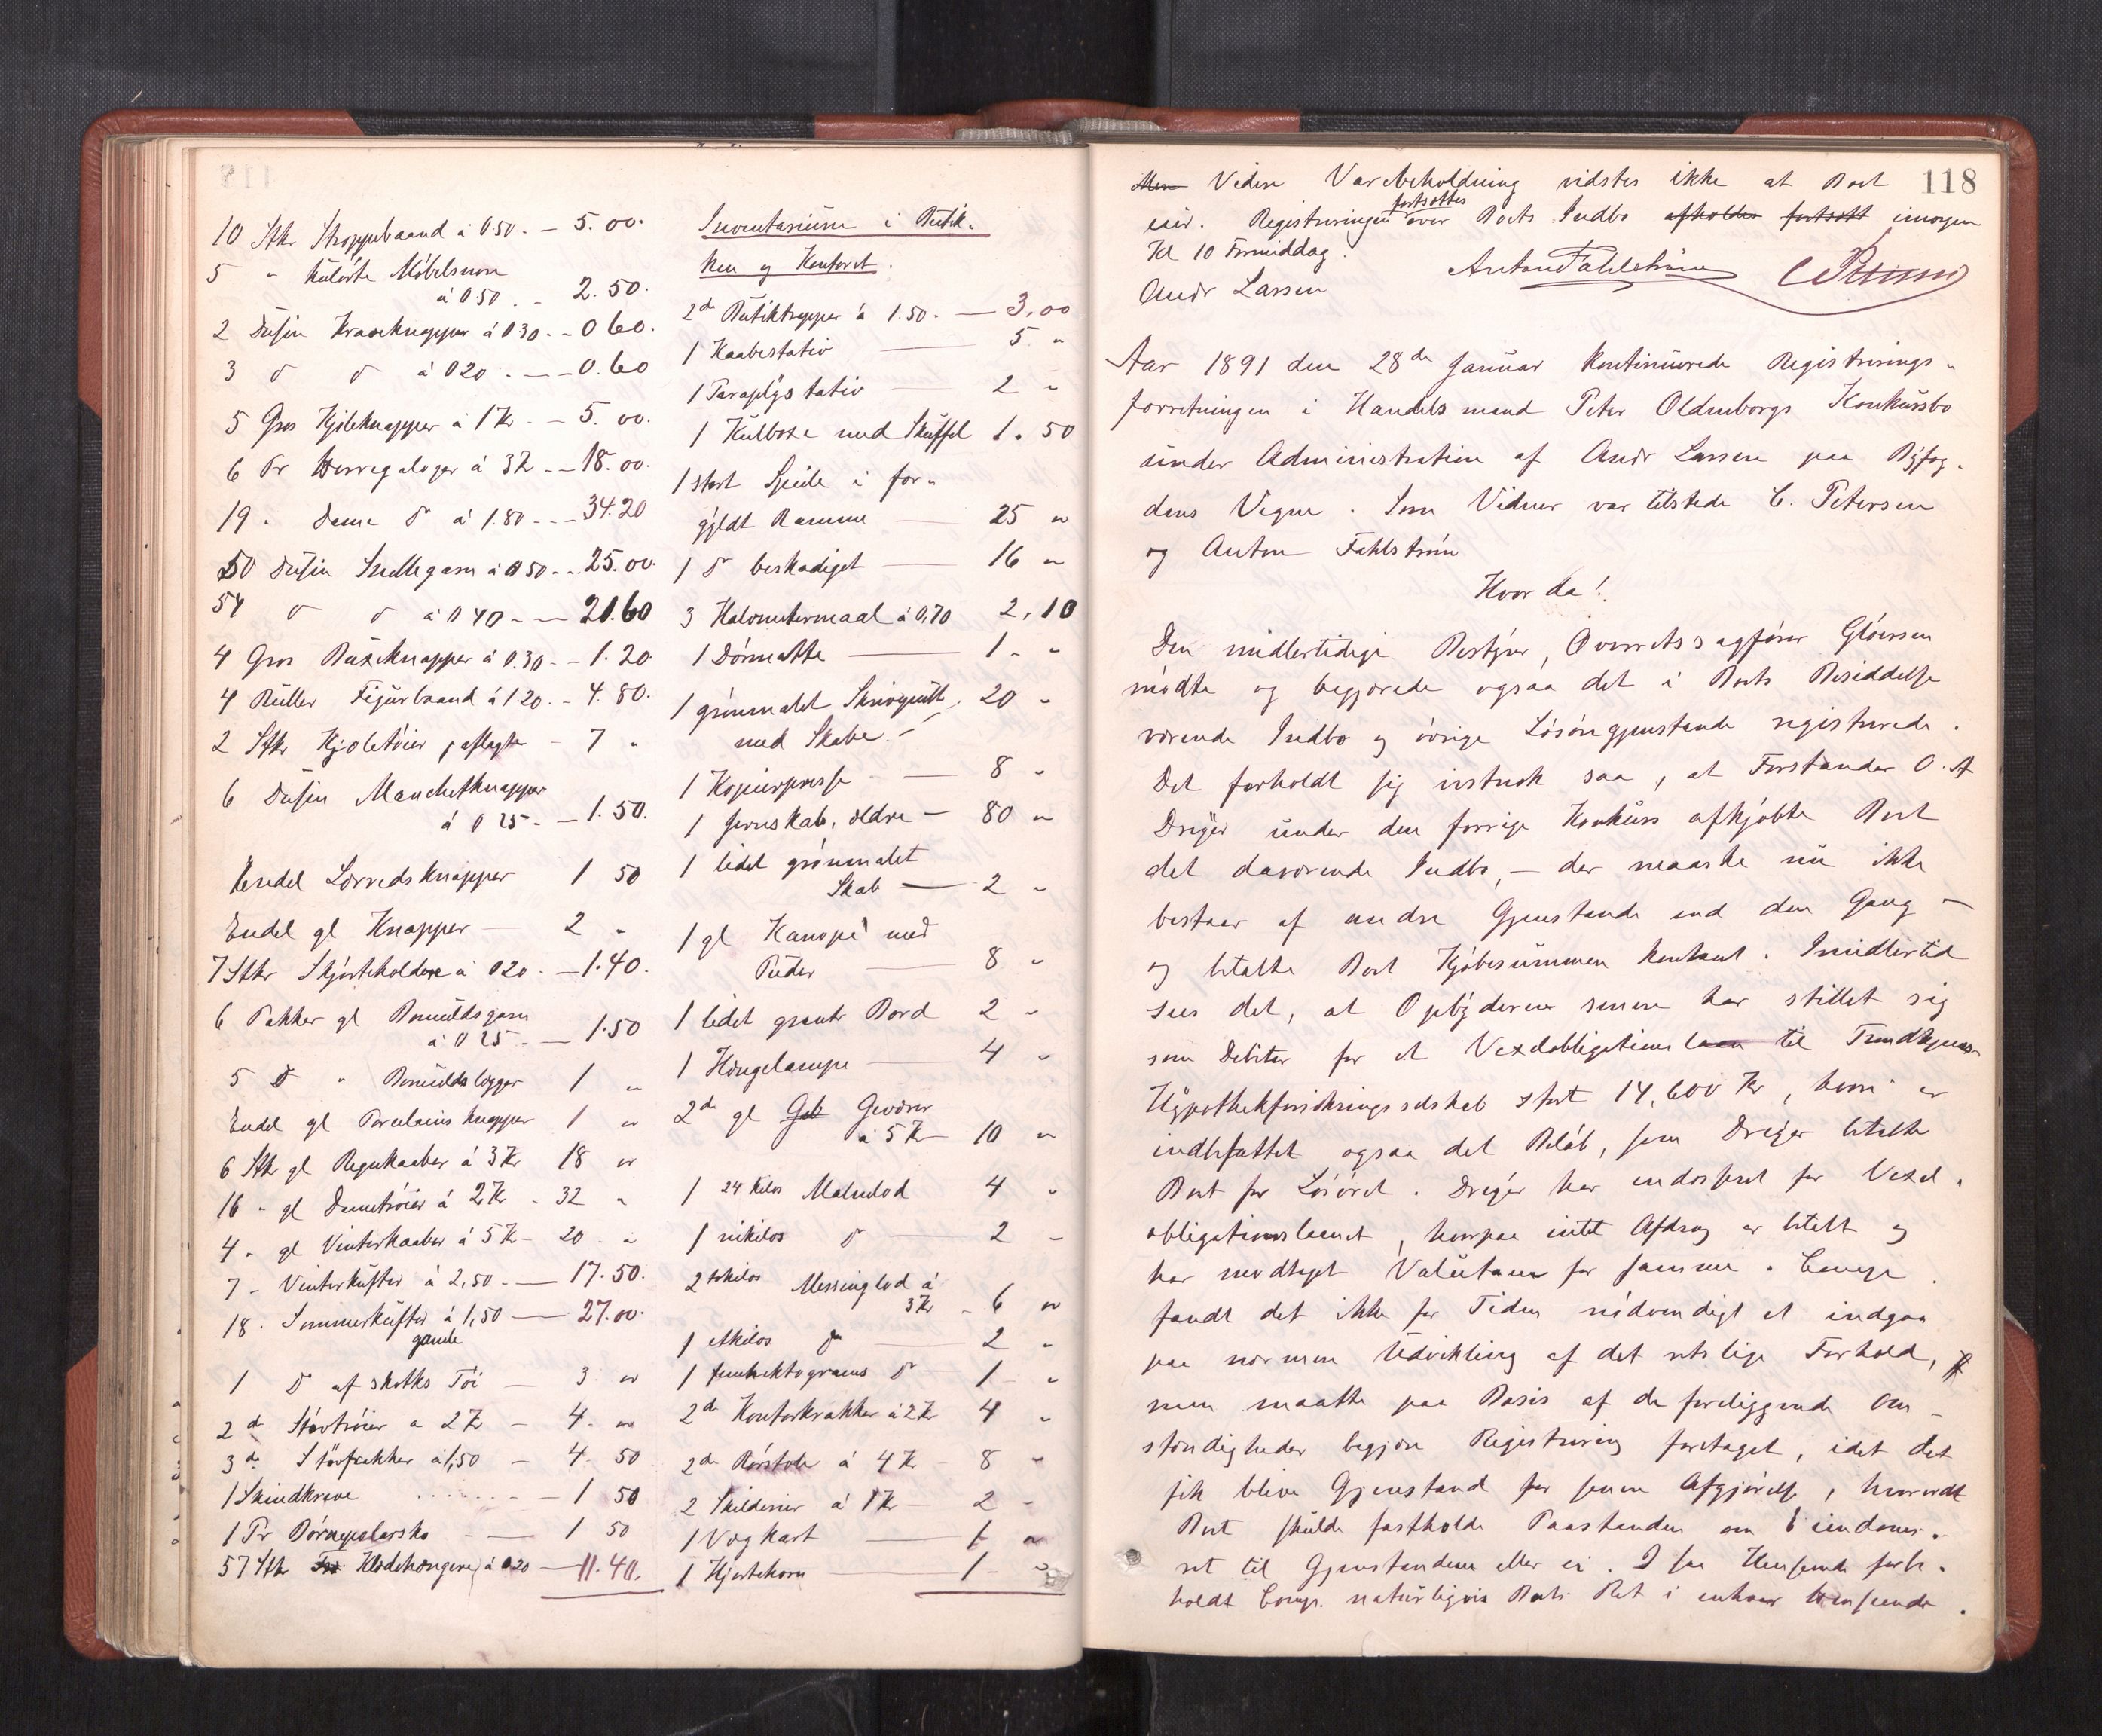 10 Stkr Stroppebaand à 0.50. — 5.00.
5 " kulørte Møbelsnore
à 0.50. - 2.50.
2 Dusin Kraveknapper à 0.30. - 0.60.
3 do do à 0.20. — 0.60
5 Gros Kjoleknapper à 1 Kr - 5.00.
6 Pr Herregaloger à 3 Kr - 18.00.
19 " Dame do à 1.80 - 34.20
50 Dusin Snellegarn à 0.50 - 25.00.
54 do do à 0.40 - 21.60
4 Gros Buxeknapper à 0.30 - 1.20.
4 Ruller Figurbaand à 1.20. - 4.80.
2 Stkr Kjoletøier, aflagte - 7 "
6 Dusin Manchetknapper
à 0.25. - 1.50.
Endel Lærredsknapper 1 50
Endel gl Knapper — 2 "
7 Stkr Skjørteholdere à 0.20. - 1.40.
6 Pakker gl Bomuldsgarn
à 0.25. - 1.50
5 do " Bomuldslogger 1 "
Endel gl Porcelains knapper 1 "
6 Stkr gl Regnkaaber à 3 Kr 18 "
16 " gl Dametrøier à 2 Kr - 32 "
4 " gl Vinterkaaber à 5 Kr - 20 "
7 " Vinterkufter à 2,50. — 17.50.
18. Sommerkufter à 1,50 — 27.00.
gamle
1 do af skotks Tøi — 3 "
2 de Støvtrøier a 2 Kr - 4. "
3 de Støvfrakker à 1,50 - 4. 50
1 Skindkrave - 1 50
1 Pr Børnepolarsko - 1 50
57 Stk Klædehængere, à 0.20 — 11.40.
Inventarium i Butik-
ken og Kontoret.
2 de Butiktrapper à 1.50. — 3,00
1 Kaabestativ — 5. "
1 Paraplystativ — 2 "
1 Kulboxe med Skuffel 1. 50
1 stort Speile i for-
gyldt Ramme — 25 "
1 do beskadiget — 16 "
3 Halvmetermaal à 0,70 2,10
1 Dørmatte — 1. "
1 grønmalet Skrivepult 20 "
med Skabe
1 Kopierpresse — 8 "
1 Jernskab, ældre — 80 "
1 lidet grønmalet
Skab — 2 "
1 gl Kanopé med
Puder — 8 "
1 lidet graat Bord 2 "
1 Hængelampe 4 "
2 de gl Geværer
à 5 Kr - 10 "
1 24 Kilos Malmlod 4 "
1 nikilos do — 2 "
2 tokilos Messinglod à
3 Kr - 6 "
1 etkilos do — 2 "
1 femhektograms do 1 "
2 de Kontorkrakker à 2 Kr 4 "
2 de Rørstole à 4 Kr 8 "
2 Skilderier à 1 Kr — 2 "
1 Vægkart — 1 "
1 Hjortehorn — 1 "
118
Men Videre Varebeholdning vidstes ikke at Boet
eier. Registreringen fortsættes over Boets Indbo afholdes fortsatt imorgen
Kl 10 Formiddag.
Andr Larsen Anton Fahlstrøm C Petersen
Aar 1891 den 28de Januar kontinuerede Registrerings-
forretningen i Handelsmand Peter Oldenborgs Konkursbo
under Administration af Andr Larsen paa Byfog-
dens Vegne. Som Vidner var tilstede C. Petersen
og Anton Fahlstrøm
Hvor da!
Den midlertidige Bestyrer, Overretssagfører Gløersen
mødte og begjærede ogsaa det i Boets Besiddelse
værende Indbo og øvrige Løsøregjenstande registrerede.
Det forholdt sig istruok saa, at Forstander O. A
Dreyer under den forrige Konkurs afkjøbte Boet
det daværende Indbo, — der maaske nu ikke
bestaar af andre Gjenstande end den Gang —
og betalte Boet Kjøbesummen kontant. Imidlertid
sees det, at Opbyderen senere har stillet sig
som Debitor for et Vexelobligationslaan til Trondhjems
Hypothekforsikringsselskab stort 14,600 Kr, hvori er
indbefattet ogsaa det Beløb, som Dreyer betalte
Boet for Løsøret. Dreyer har endosseret for Vexel-
obligationslaanet, hvorpaa intet Afdrag er betalt og
har modtaget Valutaen for samme. Comp.
fandt det ikke for Tiden nødvendigt at indgaa
paa nærmere Udvikling af det retslige Forhold,
men maatte paa Basis af de foreliggende Om-
stændigheder begjære Registrering foretaget, idet det
fik blive Gjenstand for senere Afgjørelse, hvorvidt
Boet skulde fastholde Paastanden om Eiendoms-
ret til Gjenstandene eller ei. I saa Henseende forbe-
holdt Comp. naturligvis Boets Ret i enhver Henseende.